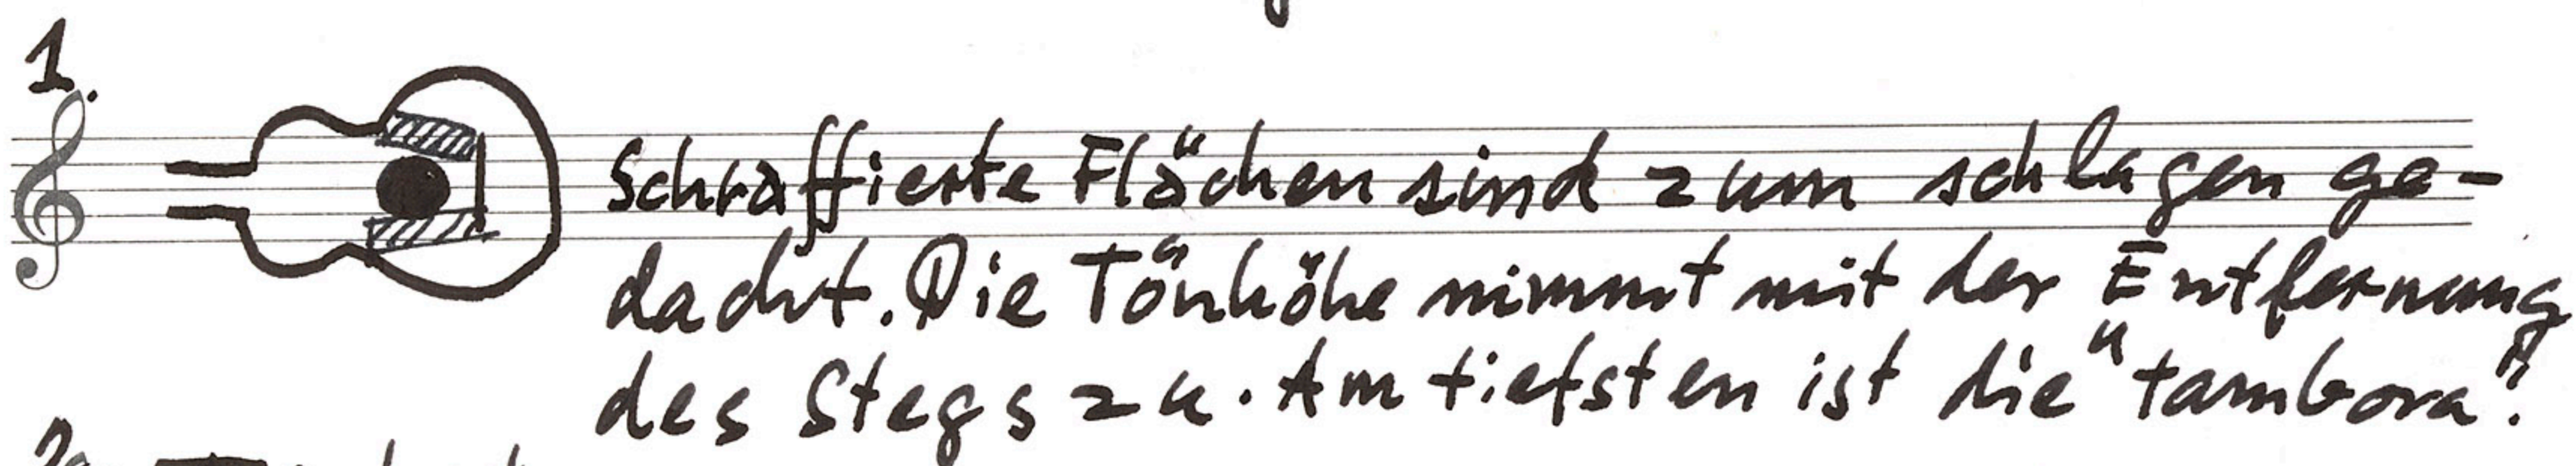 1.
Schraffierte Flächen sind zum schlagen ge-
dacht. Die Tönhöhe nimmt mit der Entfernung
des Stegs zu. Am tiefsten ist die "tambora".